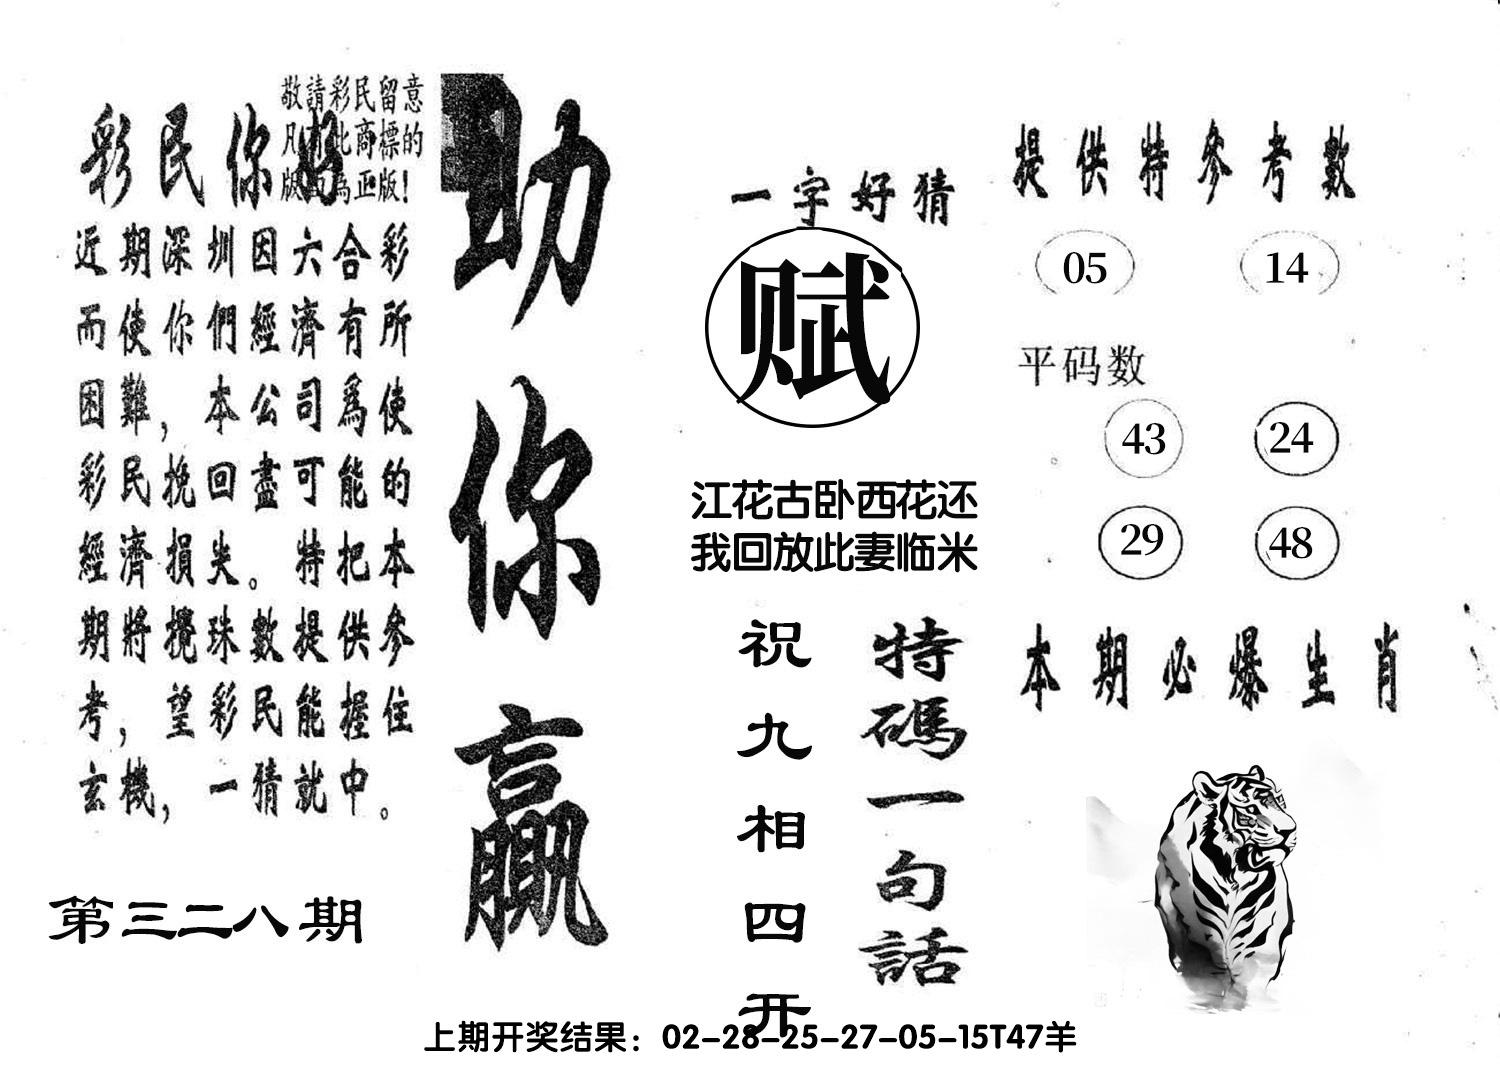 敬請彩民留意
凡有此商標的
版面為正版!
彩民你好
近期深圳因六合彩
而使你們經濟有所
困難，本公司爲使
彩民挽回盡可能的
經濟損失。特把本
期將攪珠數提供參
考，望彩民能握住
玄機，一猜就中。
第三二八期
助你贏
一字好猜
赋
江花古卧西花还
我回放此妻临米
特碼一句話
祝九相四开
提供特參考數
05 14
平码数
43 24
29 48
本期必爆生肖
上期开奖结果：02-28-25-27-05-15T47羊